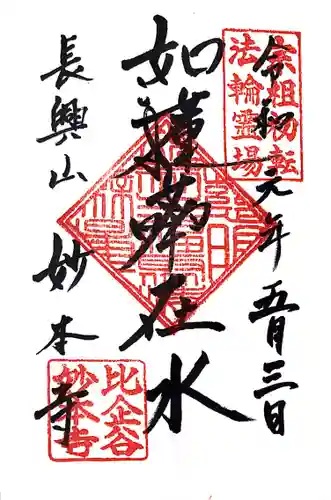 令和元年 五月三日
宗祖初転
法輪霊場
如蓮華在水
長興山 妙本寺
比企谷
妙本寺